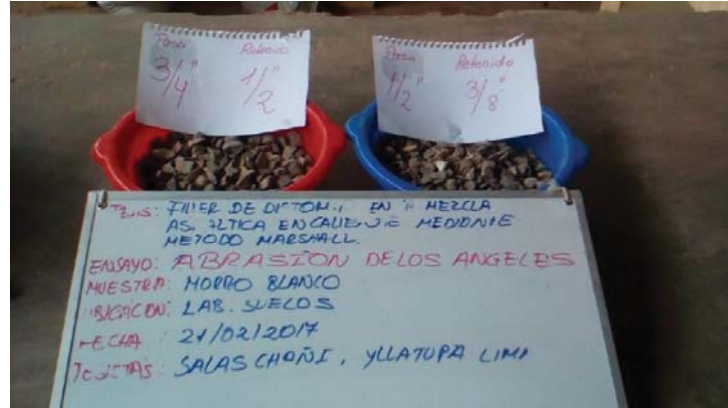 Pasa Retenido
3/4" 1/2"
Pasa Retenido
1/2" 3/8"
TESIS: FILLER DE EN MEZCLA
EN CALIENTE MEDIANTE
METODO MARSHALL.
ENSAYO: ABRASION DE LOS ANGELES
MUESTRA: MORRO BLANCO
UBICACION: LAB. SUELOS
FECHA: 21/02/2017
TESISTAS: SALAS CHOÑI, YLLATUPA LIMA